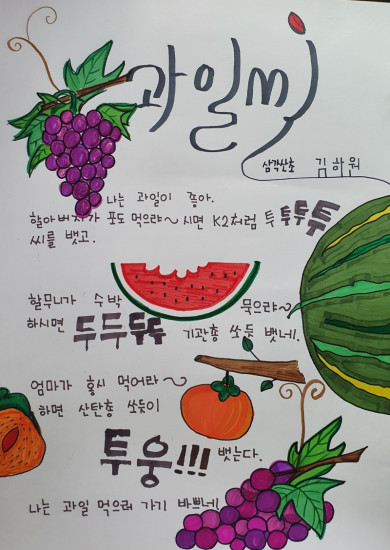 과일씨
삼각산초 김하원
나는 과일이 좋아.
할아버지가 포도 먹으랴~ 시면 K2처럼 투투투투
씨를 뱉고.
할무니가 수박 묵으랴~
하시면 두두두두 기관총 쏘듯 뱉네.
엄마가 홍시 먹어라~
하면 산탄총 쏘듯이
투웅!!! 뱉는다.
나는 과일 먹으러 가기 바쁘네